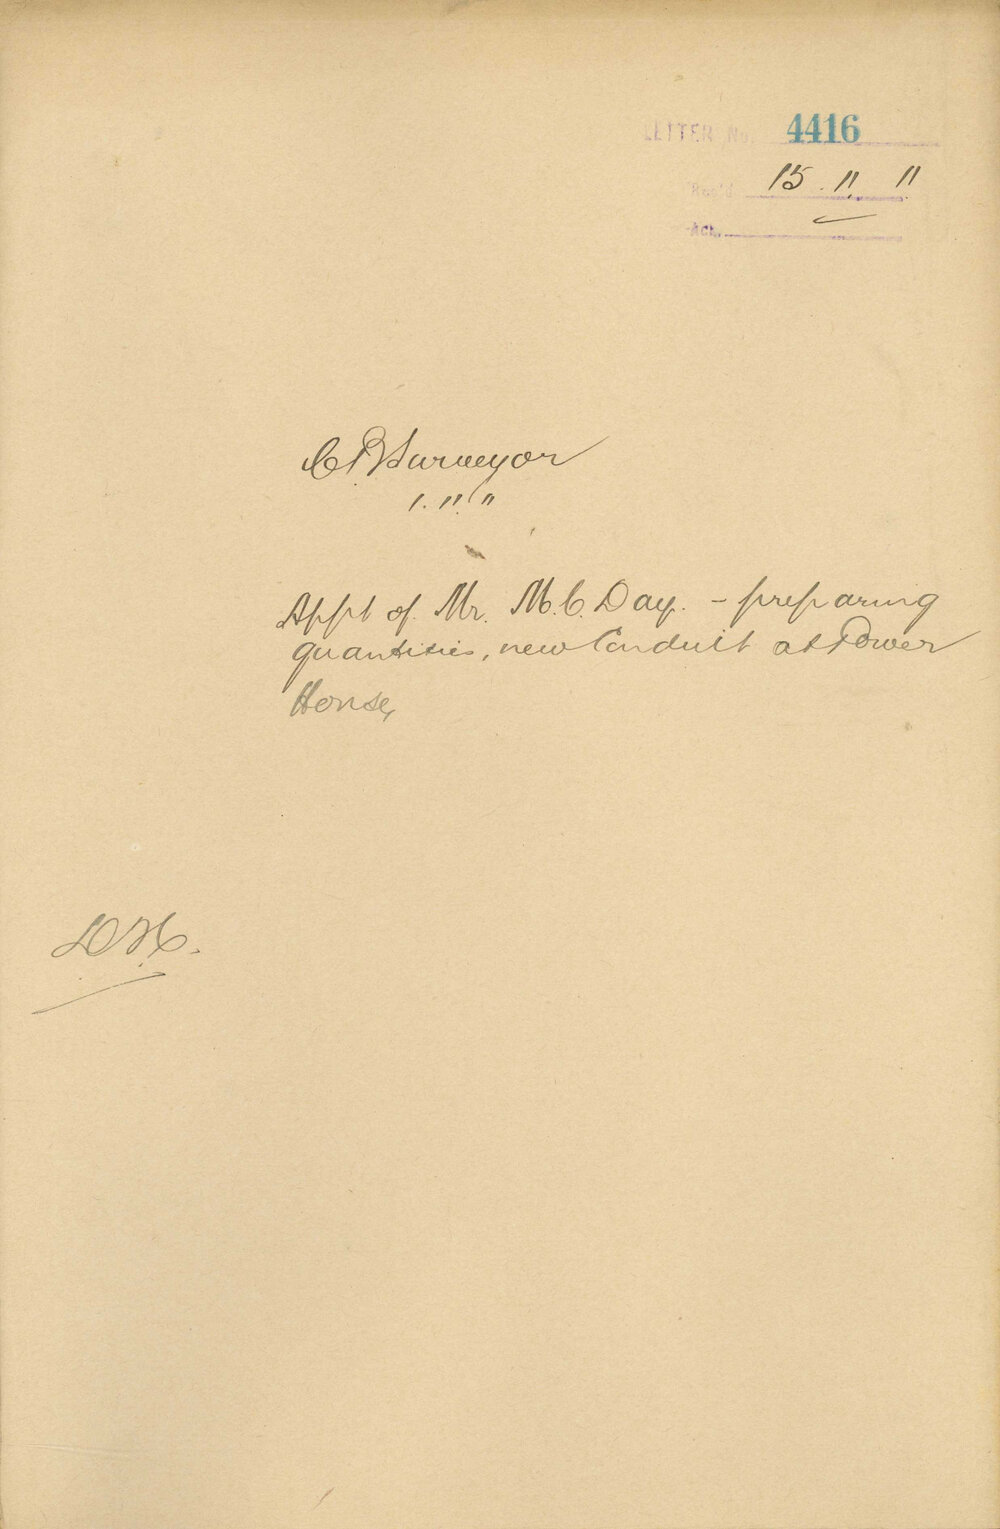 LETTER No. 4416
Rec'd 15.11.11
Act.
C. B. Surveyor
1.11.11
Appt of Mr. M. C. Day. - preparing
quantities, new Conduit at Power
House,